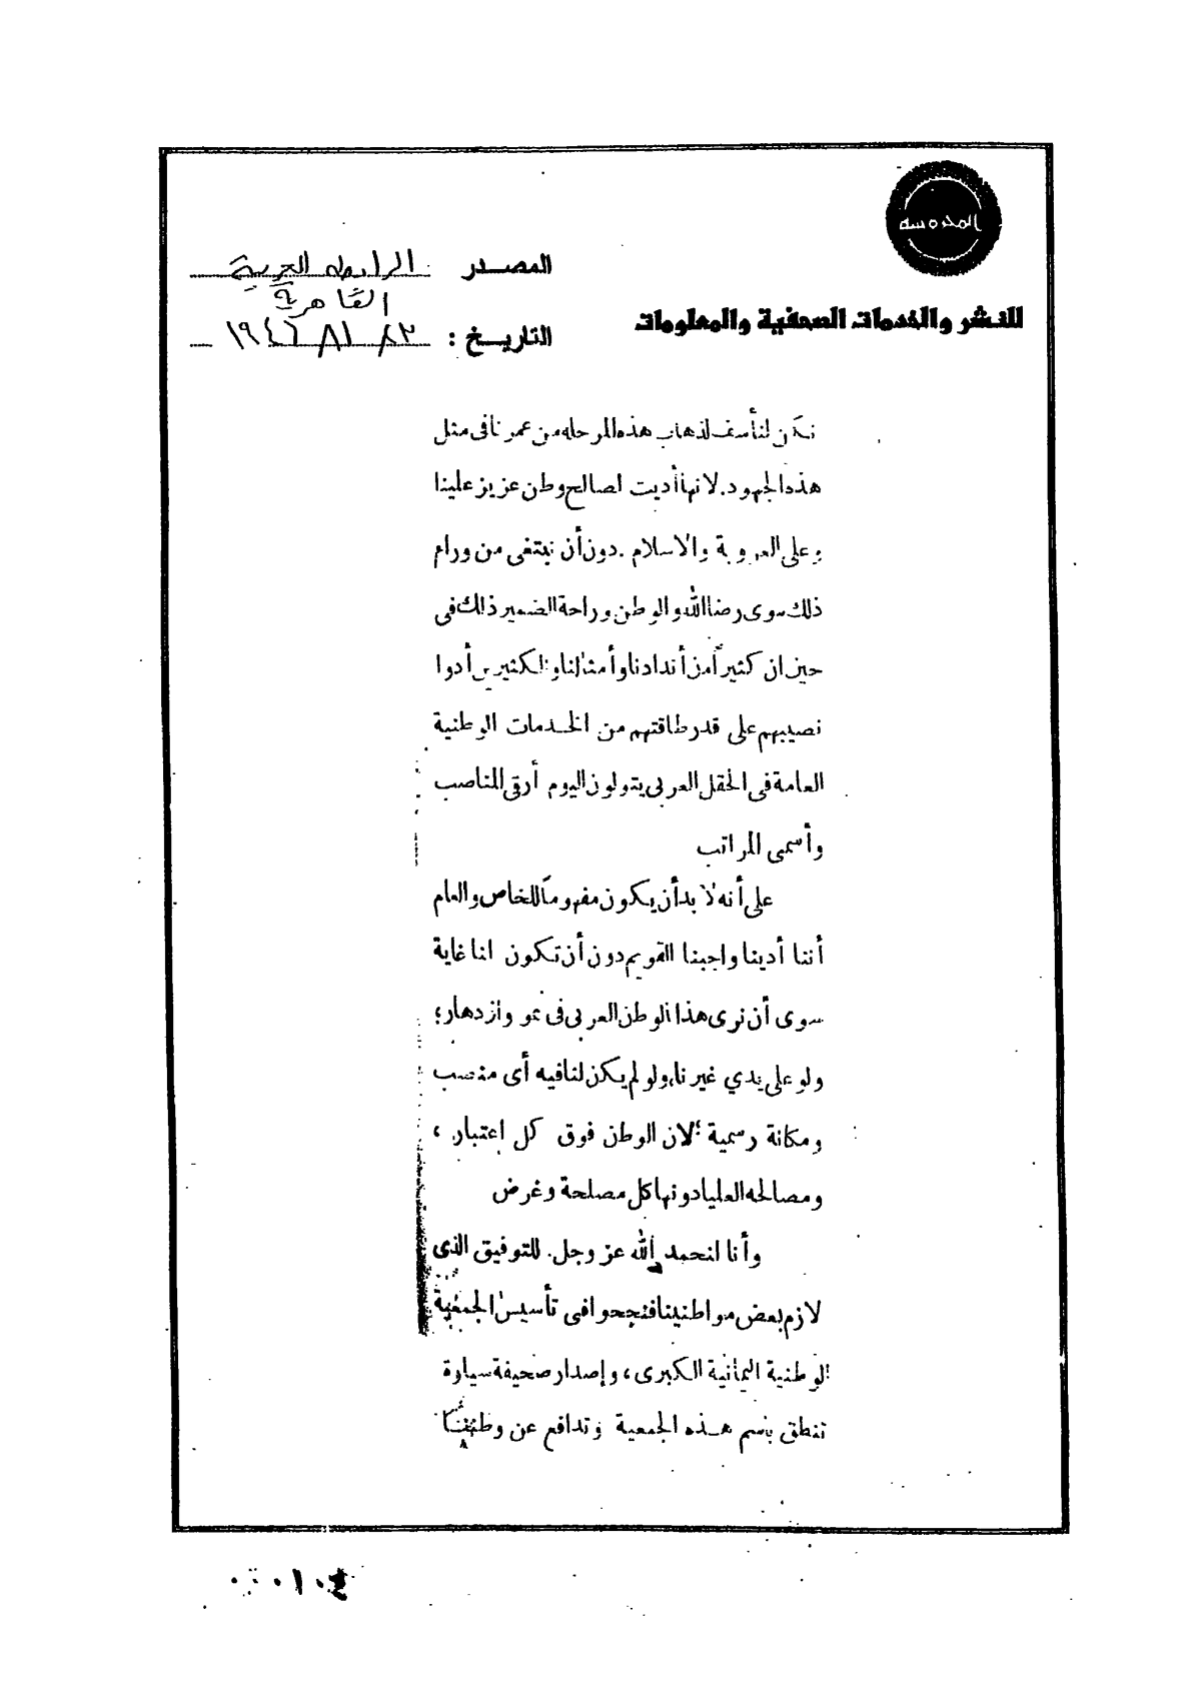 المحروسة
المصدر الرابطه العربية
القاهرية
للنشر والخدمات الصحفية والمعلومات
التاريخ : ١٩٤٦
نكن لنأسف لذهاب هذه المرحلة من عمرنا فى مثل
هذه الجهود. لانها أديت لصالح وطن عزيز علينا
وعلى العروبة والاسلام . دون أن نبتغى من وراء
ذلك سوى رضا الله والوطن وراحة الضمير ذلك فى
حين ان كثيراً من أندادنا وأمثالنا والكثيرين أدوا
نصيبهم على قدر طاقتهم من الخدمات الوطنية
العامة فى الحقل العربى يتولون اليوم أرقى المناصب
وأسمى المراتب
على أنه لا بد أن يكون مفهوماً للخاص والعام
أننا أدينا واجبنا القويم دون أن تكون لنا غاية
سوى أن نرى هذا الوطن العربى فى نمو وازدهار؛
ولو على يدي غيرنا، ولو لم يكن لنا فيه أى منصب
ومكانة رسمية لان الوطن فوق كل اعتبار ،
ومصالحه العليا دونها كل مصلحة وغرض
وأنا لنحمد الله عز وجل. للتوفيق الذى
لازم بعض مواطنينا فنجحوا فى تأسيس الجمعية
الوطنية اليمانية الكبرى، وإصدار صحيفة سيارة
تنطق باسم هذه الجمعية وتدافع عن وطننا
٠٠١٠٤